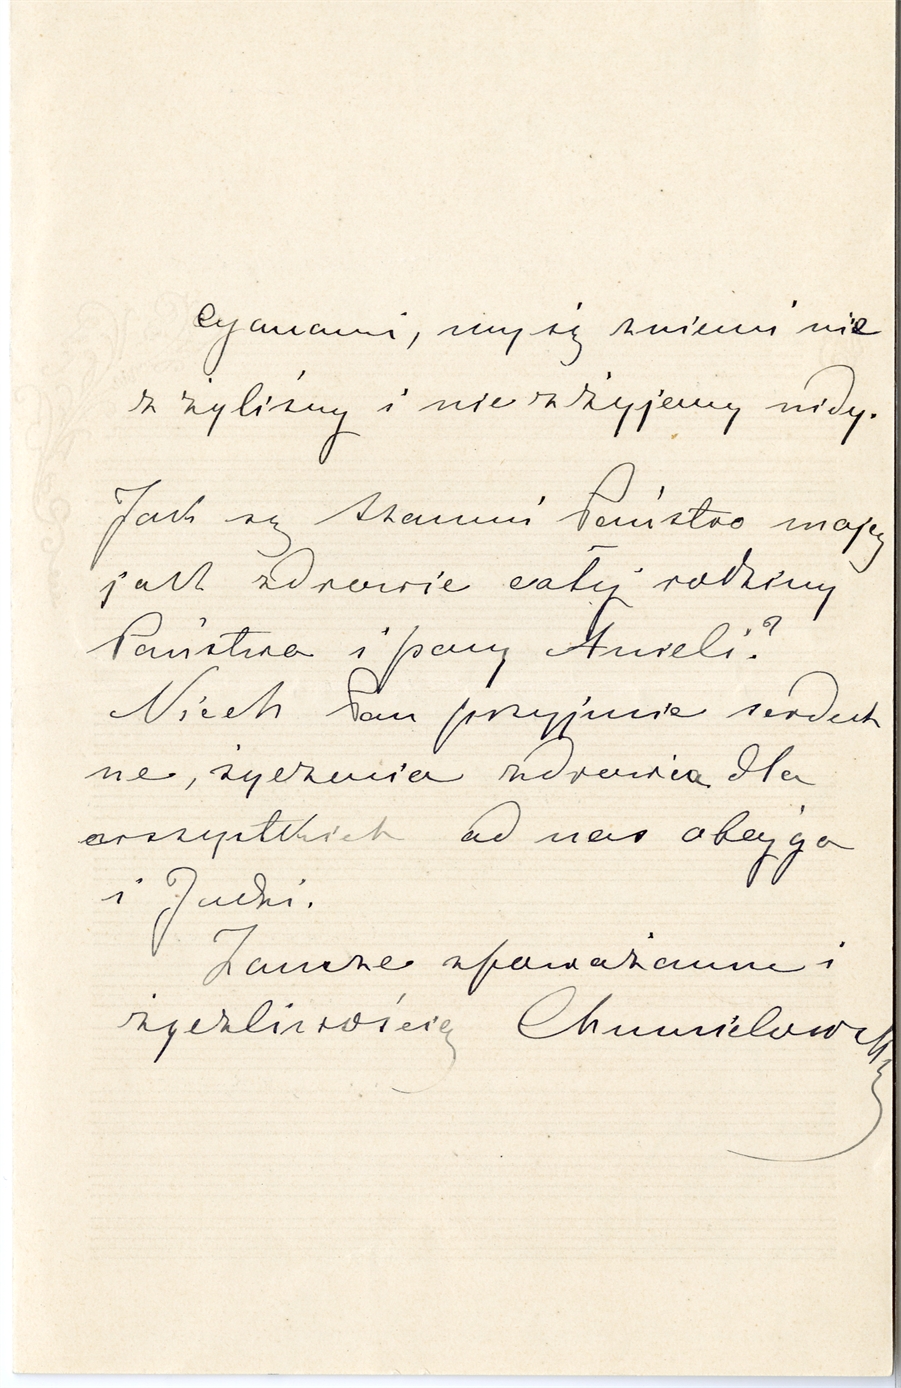 cyanami, my się zniemi nie
z żyliśmy i nie zżyjemy nidy.
Jak są Szanmi Państwo mają
jak zdrowie całej rodziny
Państwa i pany Anieli?
Niech Pan przyjmie serdecz
ne, życzenia zdrowia dla
wszystkich od nas obojga
i Judzi.
Zawsze zpoważanim i
życzliwością Chmielowsky